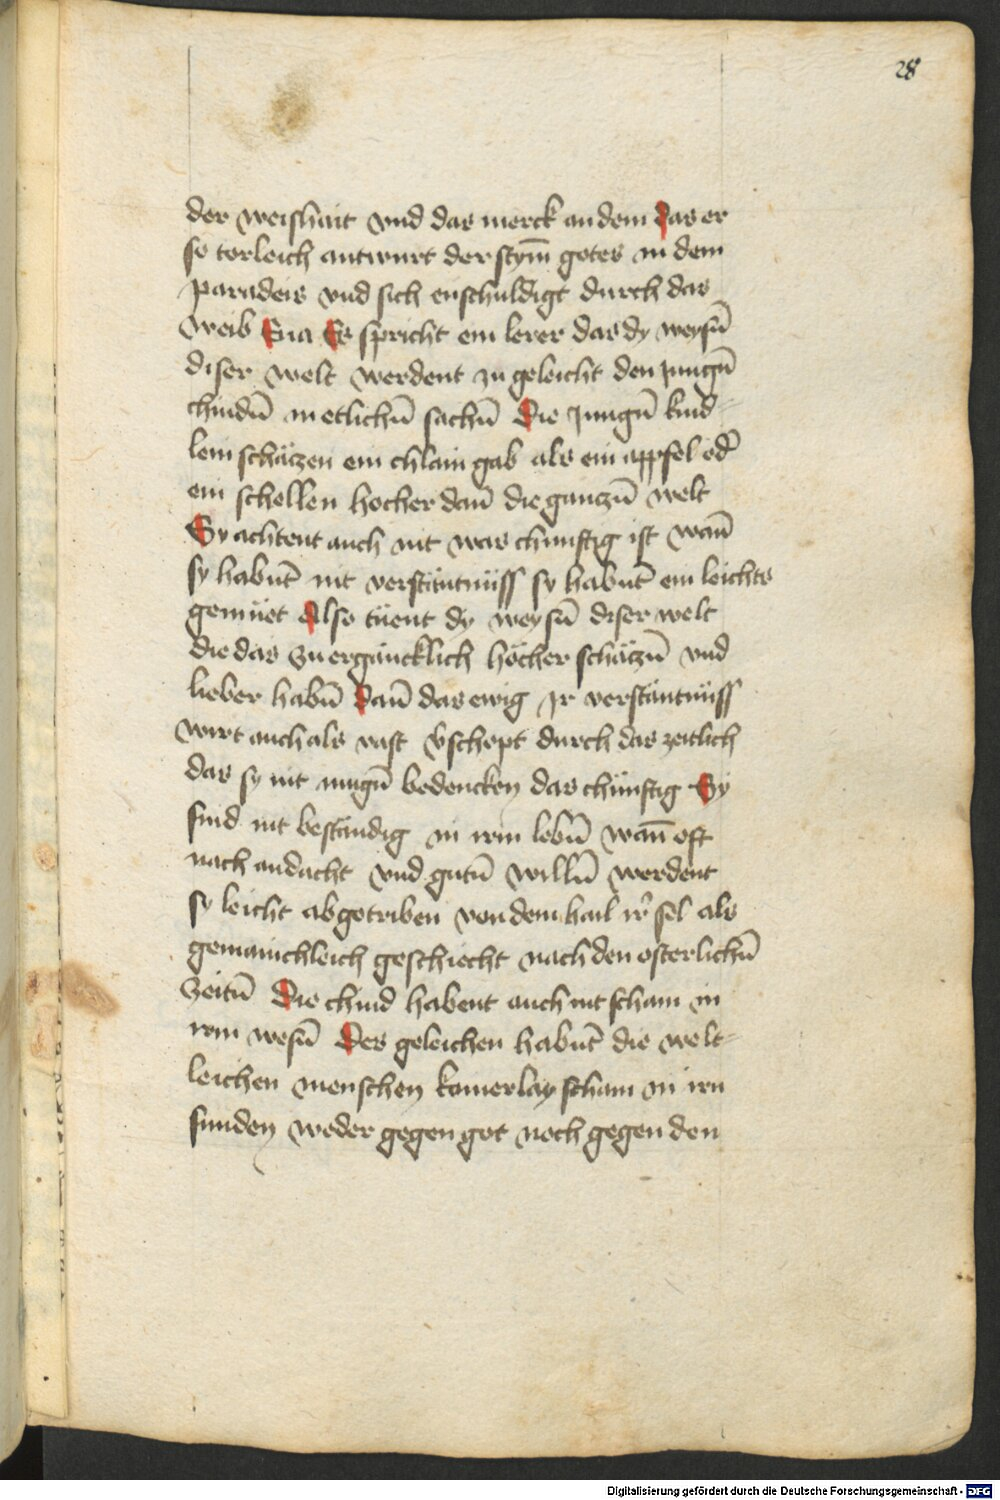 28
der weishait vnd das merck an dem Das er
so torleich antwurt der stym̄ gotes in dem
paradeis vnd sich enschuldigt durch das
weib Eua Es spricht ein lerer das dy weysn̄
diser welt werdent zu geleicht den jungn̄
chindn̄ in etlichn̄ sachn̄ Die jungn̄ kind-
lein schäczen ein chlain gab als ein appfel od̄
ein schellen hocher dan̄ die ganczn̄ welt
Sy achtent auch nit was chunftig ist wan̄
sy habnt̄ nit verständnüss sy habnt̄ ein leichts
gemüet Also tüent dy weysn̄ diser welt
die das zuergäncklich höcher schäczn̄ vnd
lieber habn̄ Dan̄ das ewig Ir verstäntnüss
wirt auch als vast v̄schopt durch das zeitlich
das sy nit mugn̄ bedencken das chünftig Sy
sind nit beständig in irm lebn̄ wan̄ oft
nach andacht vnd gutn̄ willn̄ werdent
sy leicht abgetriben von dem hail ir̄ sel als
gemainchleich geschiecht nach den osterlichn̄
zeitn̄ Die chind habent auch nit scham in
irm wesn̄ Des geleichen habnt̄ die welt-
leichen menschen kainerlay scham in irn
sunden weder gegen got noch gegen den
Digitalisierung gefördert durch die Deutsche Forschungsgemeinschaft - DFG